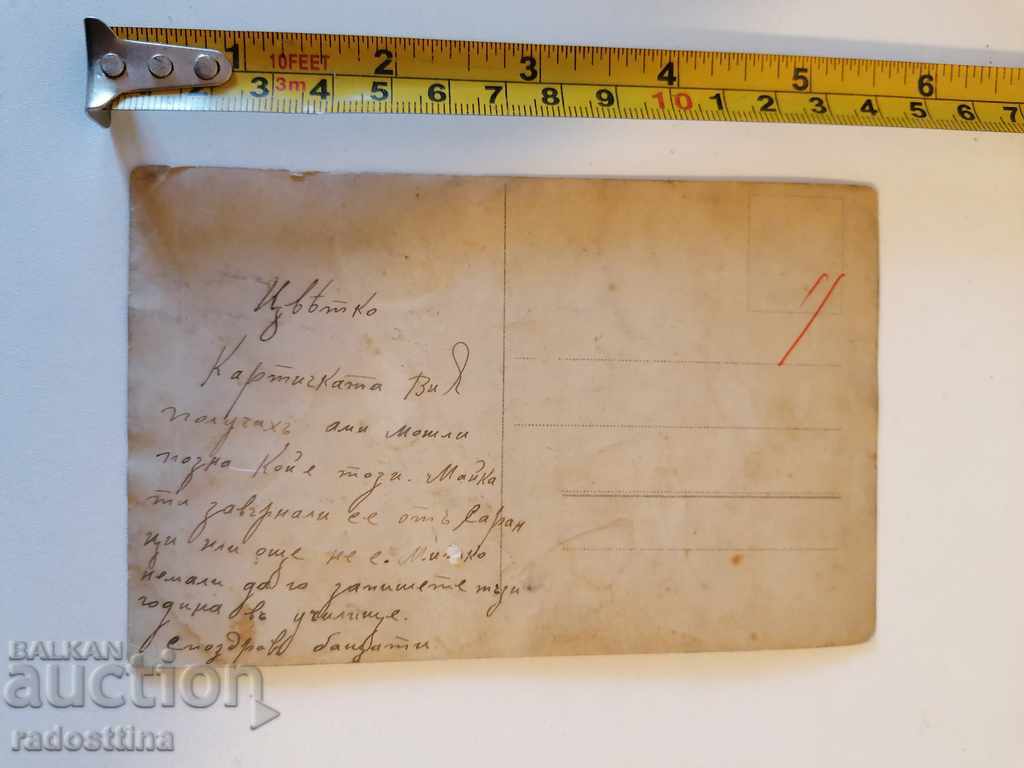 1 10FEET 2 3 4 5 6
3 3m 4 5 6 7 8 9 10 1 2 3 4 5 6 7
Цвѣтко
Картичката Ви я
получихъ ами можли
позна кой е този. Майка
ти завърнали се отъ Саран
ци или още не е. Митко
немали да го запишете тъзи
година въ училище.
Споздрав баща ти
BALKAN
auction
radosttina